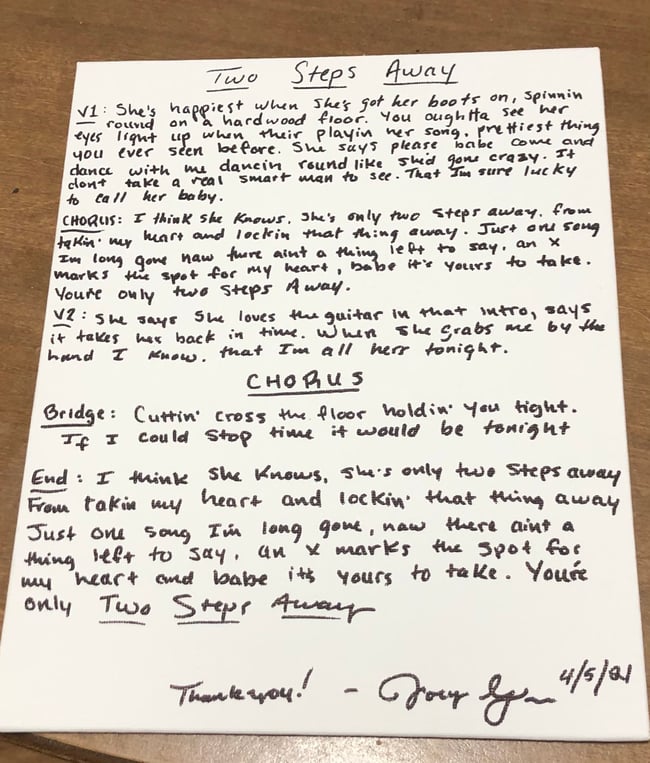 Two Steps Away
V1: She's happiest when she's got her boots on, spinnin
round on a hardwood floor. You oughtta see her
eyes light up when their playin her song, prettiest thing
you ever seen before. She says please babe come and
dance with me dancin round like she'd gone crazy. It
dont take a real smart man to see. That I'm sure lucky
to call her baby.
CHORUS: I think she knows, she's only two steps away, from
takin' my heart and lockin that thing away. Just one song
Im long gone naw there aint a thing left to say, an X
marks the spot for my heart, babe it's yours to take.
You're only two steps Away.
V2: She says She loves the guitar in that intro, says
it takes her back in time. When she grabs me by the
hand I know, that I'm all hers tonight.
CHORUS
Bridge: Cuttin' cross the floor holdin' you tight.
If I could stop time it would be tonight
End: I think she knows, she's only two steps away
From takin my heart and lockin' that thing away
Just one song I'm long gone, naw there aint a
thing left to say, an X marks the spot for
my heart and babe its yours to take. You're
only Two Steps Away
Thank you! - Joey 4/5/21